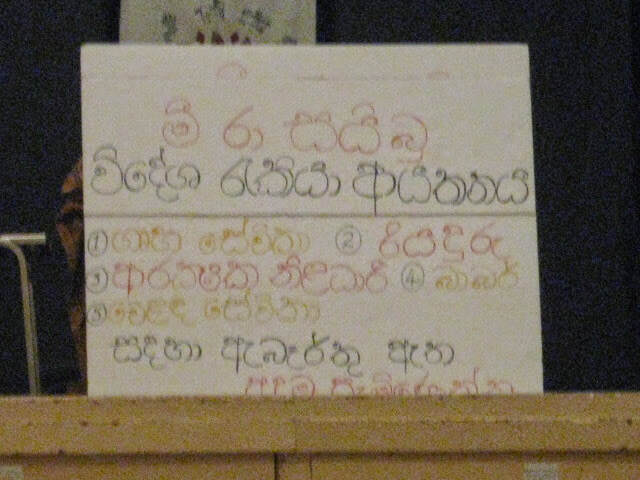 මී රා සයිබු
විදේශ රැකියා ආයතනය
① ගෘහ සේවිකා ② රියදුරු
③ ආරක්ෂක නිළධාරී ④ බාබර්
⑤ වෙළඳ සේවිකා
සදහා ඇබෑර්තු ඇත
අදම පැමිණෙන්න